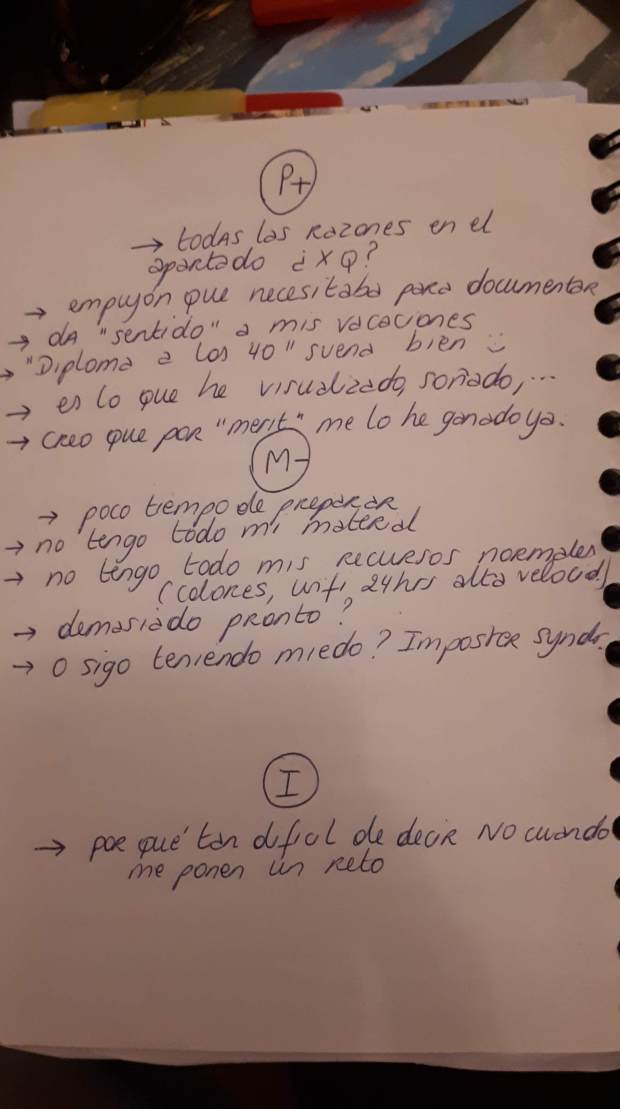 P+
→ todAs las Razones en el
apartado ¿XQ?
→ empujón que necesitaba para documentar
→ dA "sentido" a mis vacaciones
→ "Diploma a los 40" suena bien :)
→ es lo que he visualizado, soñado,...
→ creo que por "merit" me lo he ganado ya.
M-
→ poco tiempo de preparar
→ no tengo todo mi material
→ no tengo todo mis recursos normales
(colores, wifi 24hrs alta velocid.)
→ demasiado pronto?
→ o sigo teniendo miedo? Impostor syndr.
I
→ por qué tan difícil de decir NO cuando
me ponen un reto